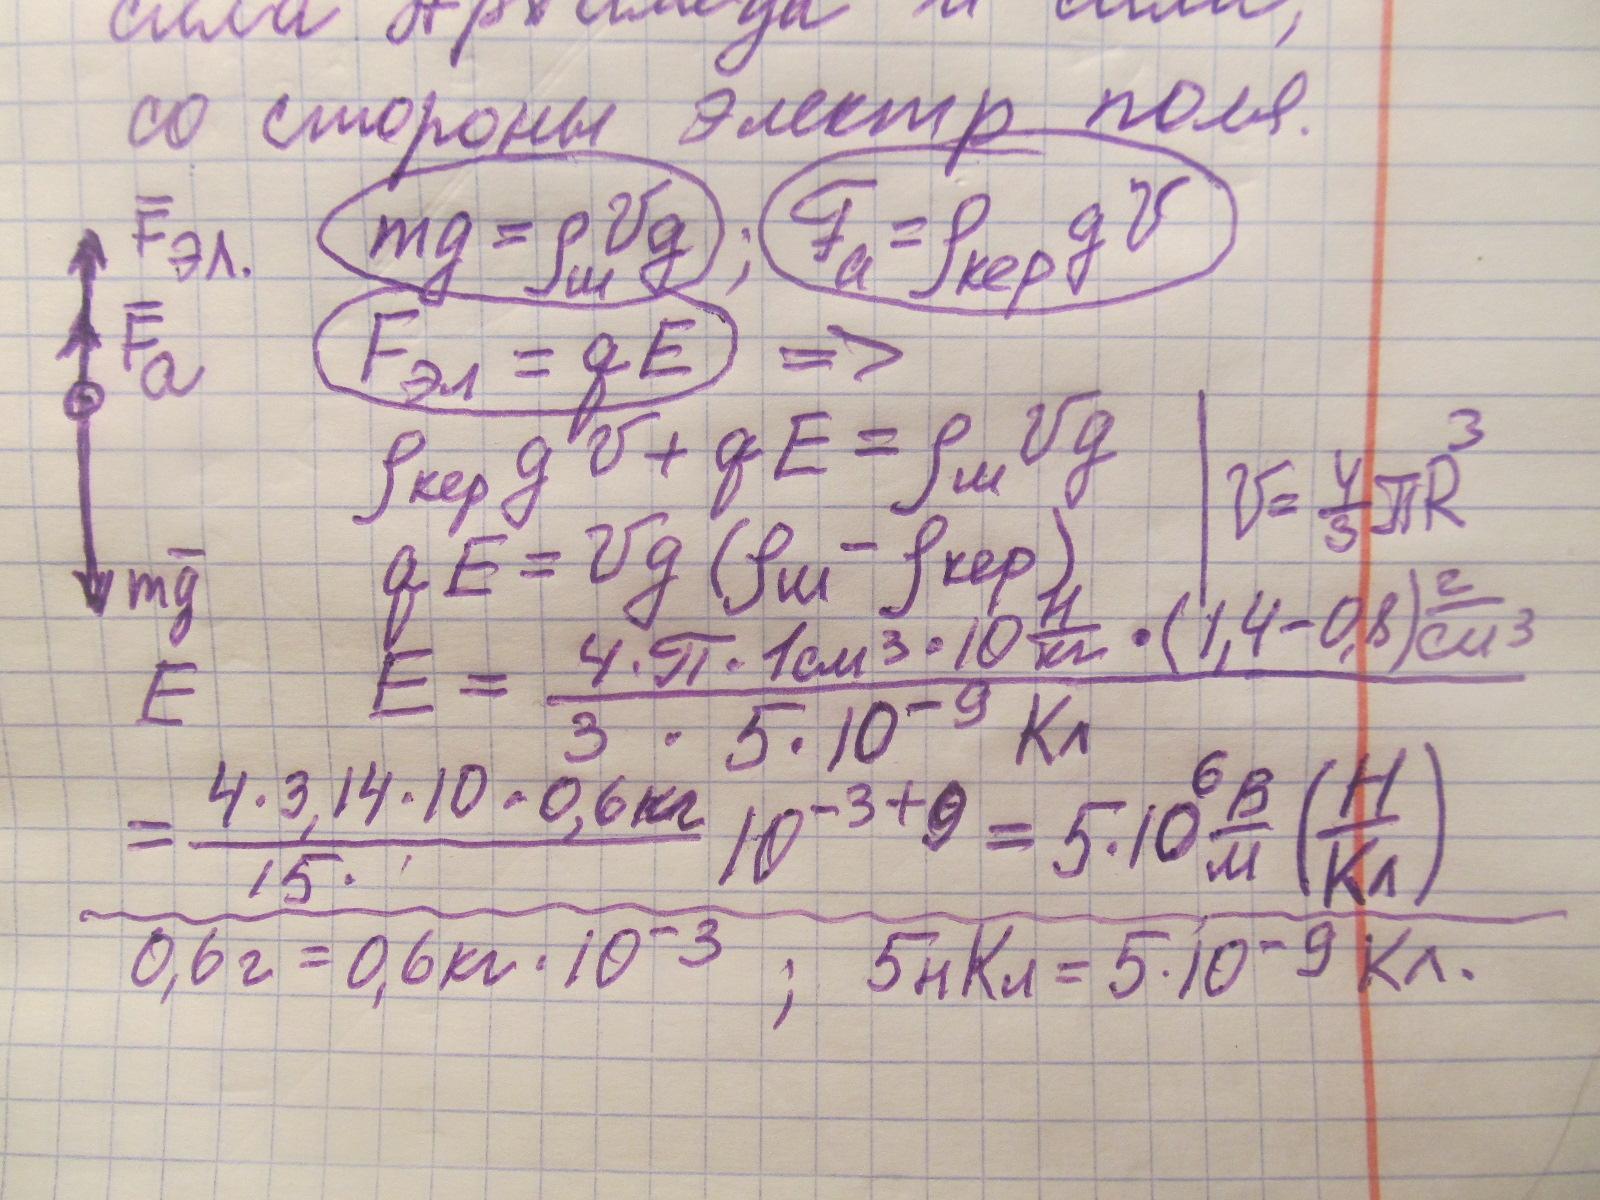 сила Архимеда и сила,
со стороны электр поля.
F̅эл. mg = ρшVg ; Fа = ρкер g V
F̅а Fэл = qE =>
ρкер g V + qE = ρшVg | V = 4/3 πR³
mg̅ qE = Vg (ρш - ρкер)
E E = 4·π·1см³·10 Н/кг · (1,4-0,8) г/см³ / 3 · 5·10⁻⁹ Кл
= 4·3,14·10·0,6кг / 15· 10⁻³⁺⁹ = 5·10⁶ В/м (Н/Кл)
0,6г = 0,6кг·10⁻³ ; 5нКл = 5·10⁻⁹ Кл.